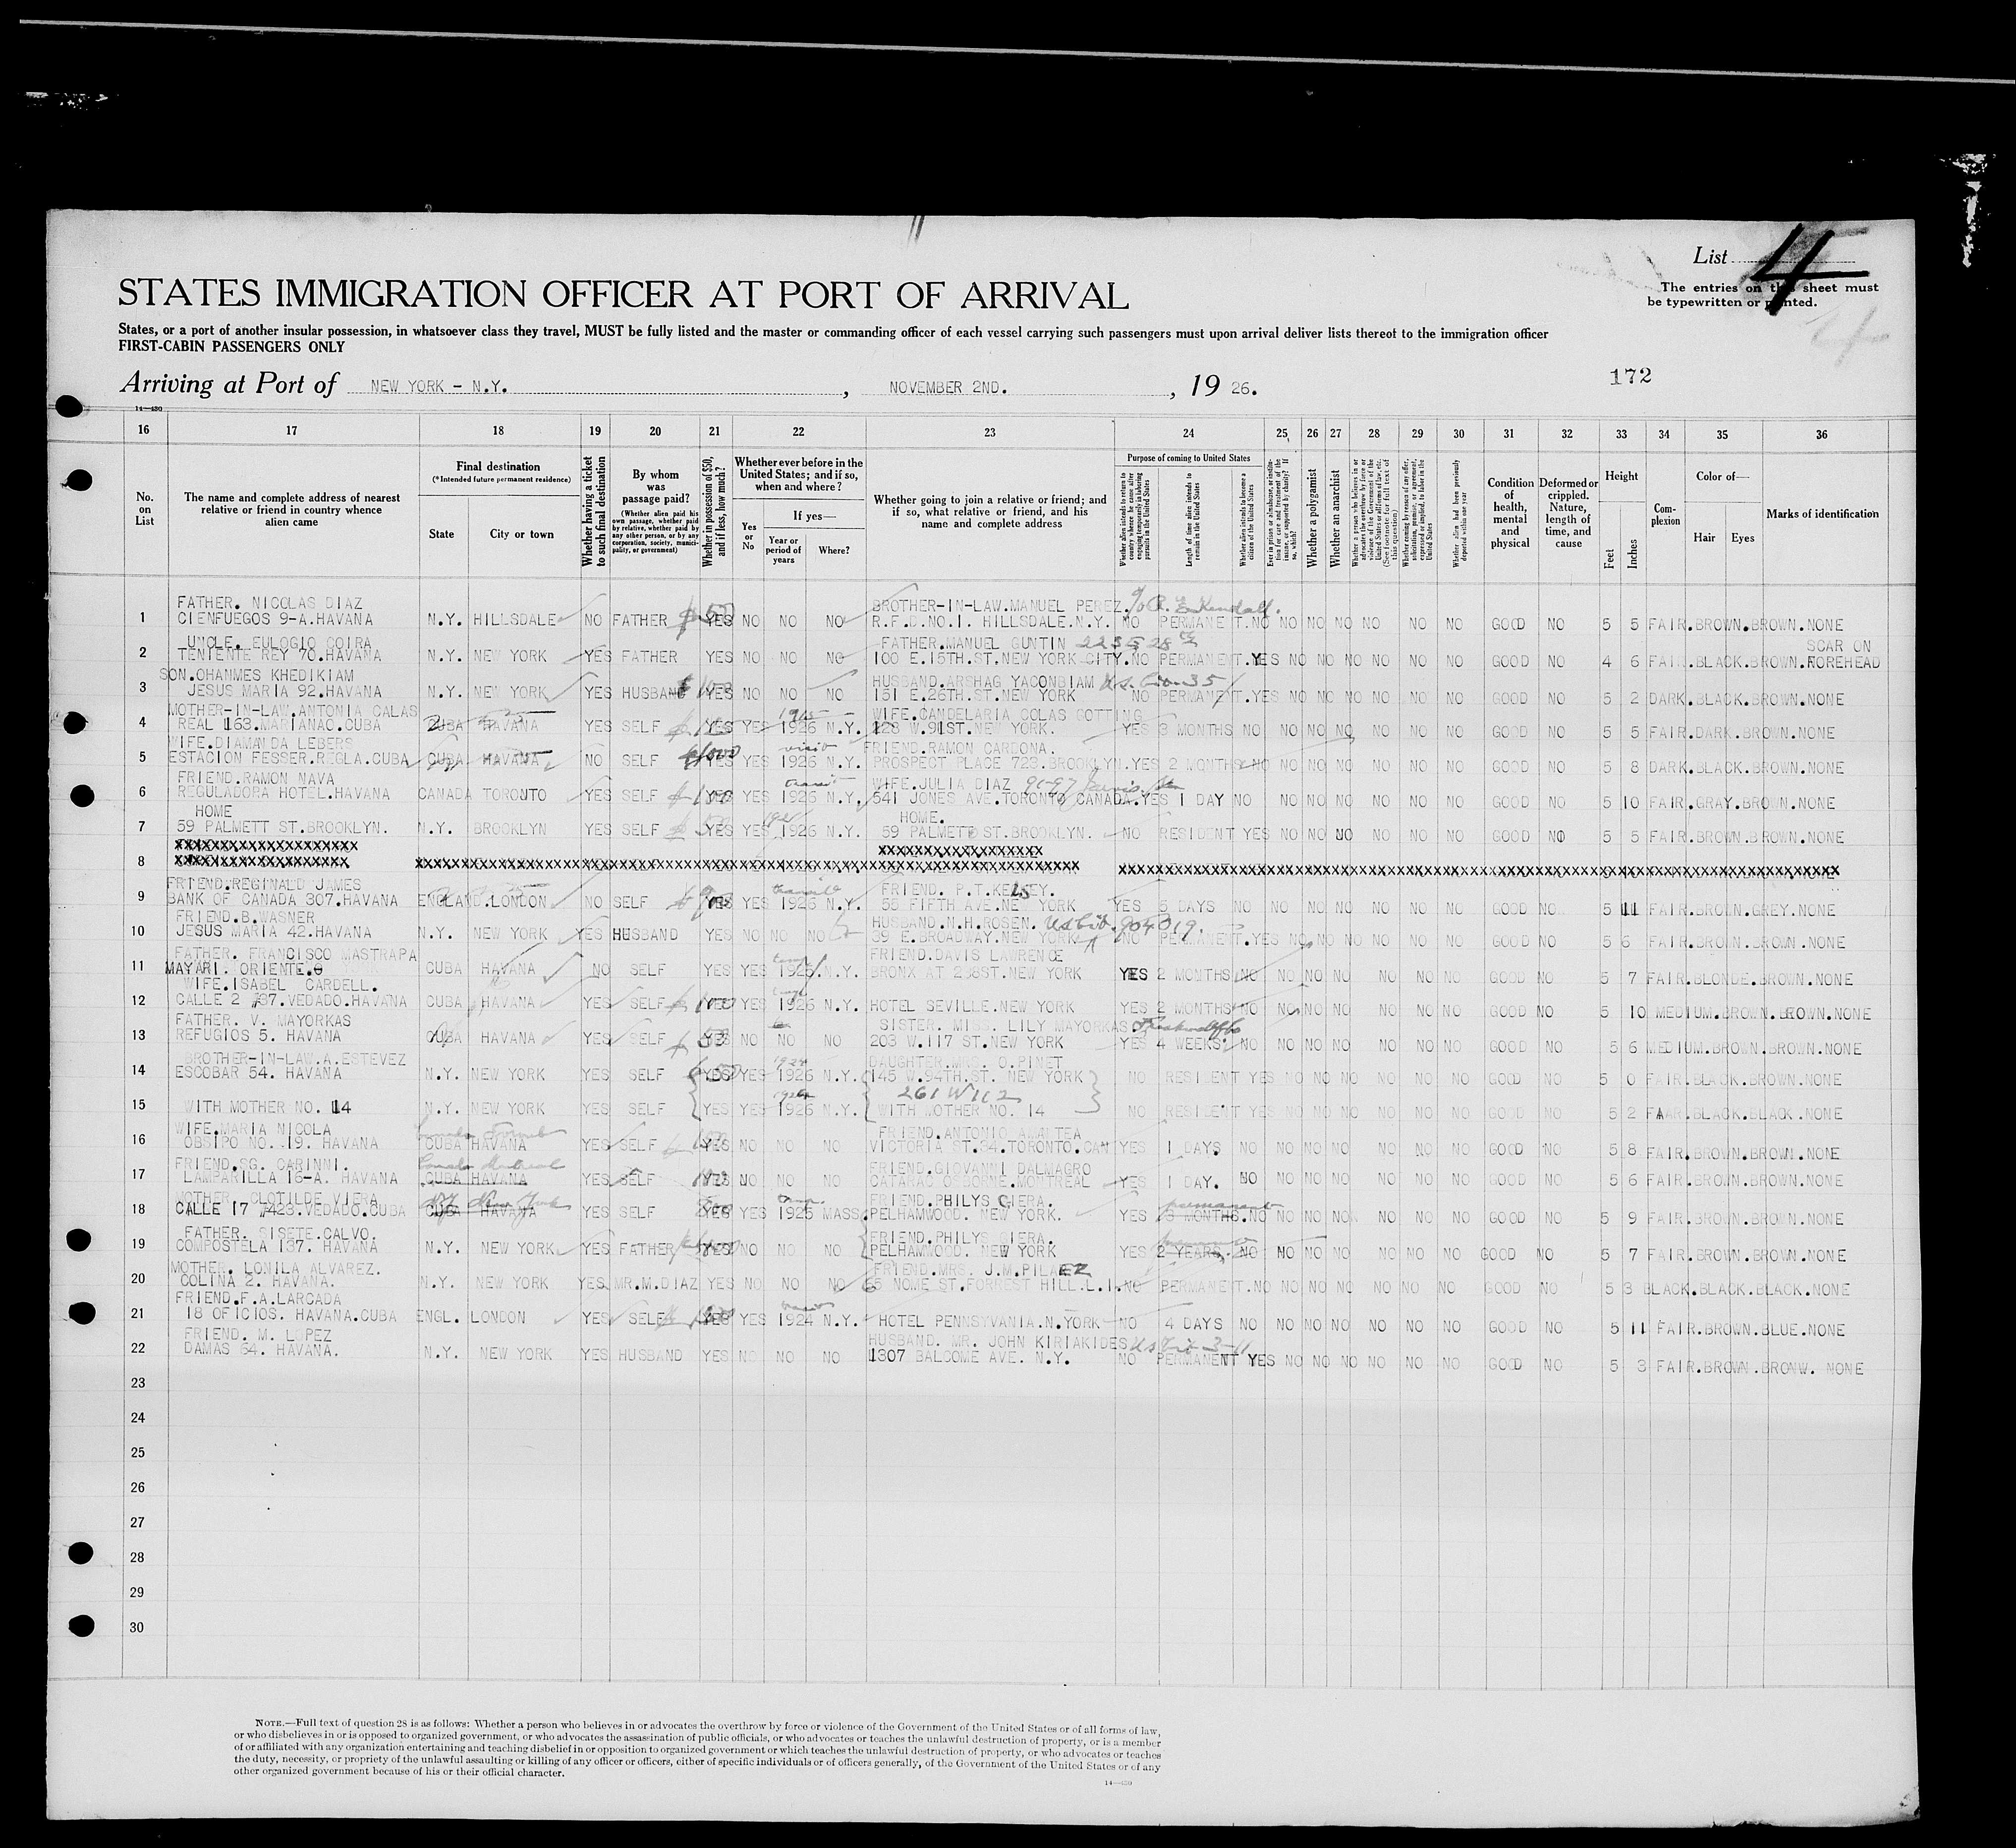 List 4
The entries on this sheet must
be typewritten or printed.
STATES IMMIGRATION OFFICER AT PORT OF ARRIVAL
States, or a port of another insular possession, in whatsoever class they travel, MUST be fully listed and the master or commanding officer of each vessel carrying such passengers must upon arrival deliver lists thereof to the immigration officer
FIRST-CABIN PASSENGERS ONLY
Arriving at Port of NEW YORK - N.Y. , NOVEMBER 2ND. , 19 26.
172
14—430
16 17 18 19 20 21 22 23 24 25 26 27 28 29 30 31 32 33 34 35 36
No. on List
The name and complete address of nearest relative or friend in country whence alien came
Final destination (*Intended future permanent residence)
State City or town
Whether having a ticket to such final destination
By whom was passage paid?
(Whether alien paid his own passage, whether paid by relative, whether paid by any other person, or by any corporation, society, municipality, or government)
Whether in possession of $50, and if less, how much?
Whether ever before in the United States; and if so, when and where?
Yes or No
If yes—
Year or period of years Where?
Whether going to join a relative or friend; and if so, what relative or friend, and his name and complete address
Purpose of coming to United States
Whether alien intends to return to country whence he came after engaging temporarily in laboring pursuits in the United States
Length of time alien intends to remain in the United States
Whether alien intends to become a citizen of the United States
Whether a polygamist
Whether an anarchist
Whether alien had been previously deported within one year
Condition of health, mental and physical
Deformed or crippled. Nature, length of time, and cause
Height
Feet Inches
Complexion
Color of—
Hair Eyes
Marks of identification
FATHER. NICOLAS DIAZ BROTHER-IN-LAW.MANUEL PEREZ.
1 CIENFUEGOS 9-A.HAVANA N.Y. HILLSDALE NO FATHER YES NO NO NO R.F.D.NO.I. HILLSDALE.N.Y. NO PERMANENT.NO NO NO NO NO NO NO GOOD NO 5 5 FAIR.BROWN.BROWN.NONE
UNCLE. EULOGIO COIRA FATHER.MANUEL GUNTIN 223 E 28th SCAR ON
2 TENIENTE REY 70.HAVANA N.Y. NEW YORK YES FATHER YES NO NO NO 100 E.15TH.ST.NEW YORK CITY.NO PERMANENT.YES NO NO NO NO NO NO GOOD NO 4 6 FAIR.BLACK.BROWN.FOREHEAD
SON.OHANMES KHEDIKIAM HUSBAND.ARSHAG YACONBIAM
3 JESUS MARIA 92.HAVANA N.Y. NEW YORK YES HUSBAND YES NO NO NO 151 E.26TH.ST.NEW YORK NO PERMANENT.YES NO NO NO NO NO NO GOOD NO 5 2 DARK.BLACK.BROWN.NONE
MOTHER-IN-LAW.ANTONIA CALAS 1915 WIFE.CANDELARIA COLAS GOTTING
4 REAL 163.MARIANAO.CUBA CUBA HAVANA YES SELF YES YES 1926 N.Y. 128 W.91ST.NEW YORK. YES 3 MONTHS NO NO NO NO NO NO NO GOOD NO 5 5 FAIR.DARK.BROWN.NONE
WIFE.DIAMANDA LEBERS FRIEND.RAMON CARDONA.
5 ESTACION FESSER.REGLA.CUBA CUBA HAVANA NO SELF YES YES 1926 N.Y. PROSPECT PLACE 723.BROOKLYN.YES 2 MONTHS NO NO NO NO NO NO NO GOOD NO 5 8 DARK.BLACK.BROWN.NONE
FRIEND.RAMON NAVA transit WIFE.JULIA DIAZ
6 REGULADORA HOTEL.HAVANA CANADA TORONTO YES SELF YES 1926 N.Y. 541 JONES AVE.TORONTO CANADA.YES 1 DAY NO NO NO NO NO NO NO GOOD NO 5 10 FAIR.GRAY.BROWN.NONE
HOME HOME.
7 59 PALMETT ST.BROOKLYN. N.Y. BROOKLYN YES SELF YES YES 1926 N.Y. 59 PALMETT ST.BROOKLYN. NO RESIDENT YES NO NO NO NO NO NO GOOD NO 5 5 FAIR.BROWN.BROWN.NONE
8
FRIEND.REGINALD JAMES transit FRIEND. P.T.KELSEY.
9 BANK OF CANADA 307.HAVANA ENGLAND.LONDON NO SELF YES YES 1926 N.Y. 55 FIFTH AVE.NEW YORK YES 5 DAYS NO NO NO NO NO NO NO GOOD NO 5 11 FAIR.BROWN.GREY.NONE
FRIEND.B.WASNER HUSBAND.N.H.ROSEN.
10 JESUS MARIA 42.HAVANA N.Y. NEW YORK YES HUSBAND YES NO NO NO 39 E.BROADWAY.NEW YORK NO PERMANENT.YES NO NO NO NO NO NO GOOD NO 5 6 FAIR.BROWN.BROWN.NONE
FATHER. FRANCISCO MASTRAPA FRIEND.DAVIS LAWRENCE
11 MAYARI. ORIENTE. CUBA HAVANA NO SELF YES YES 1925.N.Y. BRONX AT 238ST.NEW YORK YES 2 MONTHS NO NO NO NO NO NO NO GOOD NO 5 7 FAIR.BLONDE.BROWN.NONE
WIFE.ISABEL CARDELL.
12 CALLE 2 #37.VEDADO.HAVANA CUBA HAVANA YES SELF YES YES 1926 N.Y. HOTEL SEVILLE.NEW YORK YES 2 MONTHS NO NO NO NO NO NO NO GOOD NO 5 10 MEDIUM.BROWN.BROWN.NONE
FATHER. V. MAYORKAS SISTER. MISS. LILY MAYORKAS
13 REFUGIOS 5. HAVANA CUBA HAVANA YES SELF YES NO NO NO 203 W.117 ST.NEW YORK YES 4 WEEKS. NO NO NO NO NO NO NO GOOD NO 5 6 MEDIUM.BROWN.BROWN.NONE
BROTHER-IN-LAW.A.ESTEVEZ DAUGHTER.MRS. O.PINET
14 ESCOBAR 54. HAVANA N.Y. NEW YORK YES SELF YES YES 1926 N.Y. 145 W.94TH.ST. NEW YORK NO RESIDENT YES NO NO NO NO NO NO GOOD NO 5 0 FAIR.BLACK.BROWN.NONE
261 W 112
15 WITH MOTHER NO. 14 N.Y. NEW YORK YES SELF YES YES 1926 N.Y. WITH MOTHER NO. 14 NO RESIDENT YES NO NO NO NO NO NO GOOD NO 5 2 FAIR.BLACK.BLACK.NONE
WIFE.MARIA NICOLA FRIEND.ANTONIO AMANTEA
16 OBSIPO NO. 19. HAVANA CUBA HAVANA YES SELF YES NO NO NO VICTORIA ST.34.TORONTO.CAN YES 1 DAYS NO NO NO NO NO NO NO GOOD NO 5 8 FAIR.BROWN.BROWN.NONE
FRIEND.SG. CARINNI. Canada Montreal FRIEND.GIOVANNI DALMAGRO
17 LAMPARILLA 16-A. HAVANA CUBA HAVANA YES SELF YES NO NO NO CATARAC OSBORNE.MONTREAL YES 1 DAY. NO NO NO NO NO NO NO GOOD NO 5 6 FAIR.BROWN.BROWN.NONE
MOTHER. CLOTILDE VIERA NY New York FRIEND.PHILYS GIERA. permanent
18 CALLE 17 #423.VEDADO.CUBA CUBA HAVANA YES SELF YES YES 1925 MASS. PELHAMWOOD. NEW YORK. YES 6 MONTHS.NO NO NO NO NO NO NO GOOD NO 5 9 FAIR.BROWN.BROWN.NONE
FATHER. SISETE.CALVO. FRIEND.PHILYS GIERA.
19 COMPOSTELA 137. HAVANA N.Y. NEW YORK YES FATHER YES NO NO NO PELHAMWOOD. NEW YORK YES 2 YEARS. NO NO NO NO NO NO GOOD NO 5 7 FAIR.BROWN.BROWN.NONE
MOTHER. LONILA ALVAREZ. FRIEND.MRS. J.M.PILAEZ
20 COLINA 2. HAVANA. N.Y. NEW YORK YES MR.M.DIAZ YES NO NO NO 65 NOME ST.FORREST HILL.L.I.NO PERMANENT.NO NO NO NO NO NO NO GOOD NO 5 3 BLACK.BLACK.BLACK.NONE
FRIEND.F.A.LARCADA
21 18 OFICIOS. HAVANA.CUBA ENGL. LONDON YES SELF YES YES 1924 N.Y. HOTEL PENNSYVANIA.N.YORK NO 4 DAYS NO NO NO NO NO NO NO GOOD NO 5 11 FAIR.BROWN.BLUE.NONE
FRIEND. M. LOPEZ HUSBAND. MR. JOHN KIRIAKIDES
22 DAMAS 64. HAVANA. N.Y. NEW YORK YES HUSBAND YES NO NO NO 1307 BALCOME AVE. N.Y. NO PERMANENT YES NO NO NO NO NO NO GOOD NO 5 3 FAIR.BROWN.BRONW. NONE
23
24
25
26
27
28
29
30
NOTE.—Full text of question 28 is as follows: Whether a person who believes in or advocates the overthrow by force or violence of the Government of the United States or of all forms of law,
or who disbelieves in or is opposed to organized government, or who advocates the assassination of public officials, or who advocates or teaches the unlawful destruction of property, or is a member
of or affiliated with any organization entertaining and teaching disbelief in or opposition to organized government or which teaches the unlawful destruction of property, or who advocates or teaches
the duty, necessity, or propriety of the unlawful assaulting or killing of any officer or officers, either of specific individuals or of officers generally, of the Government of the United States or of any
other organized government because of his or their official character.
14—430